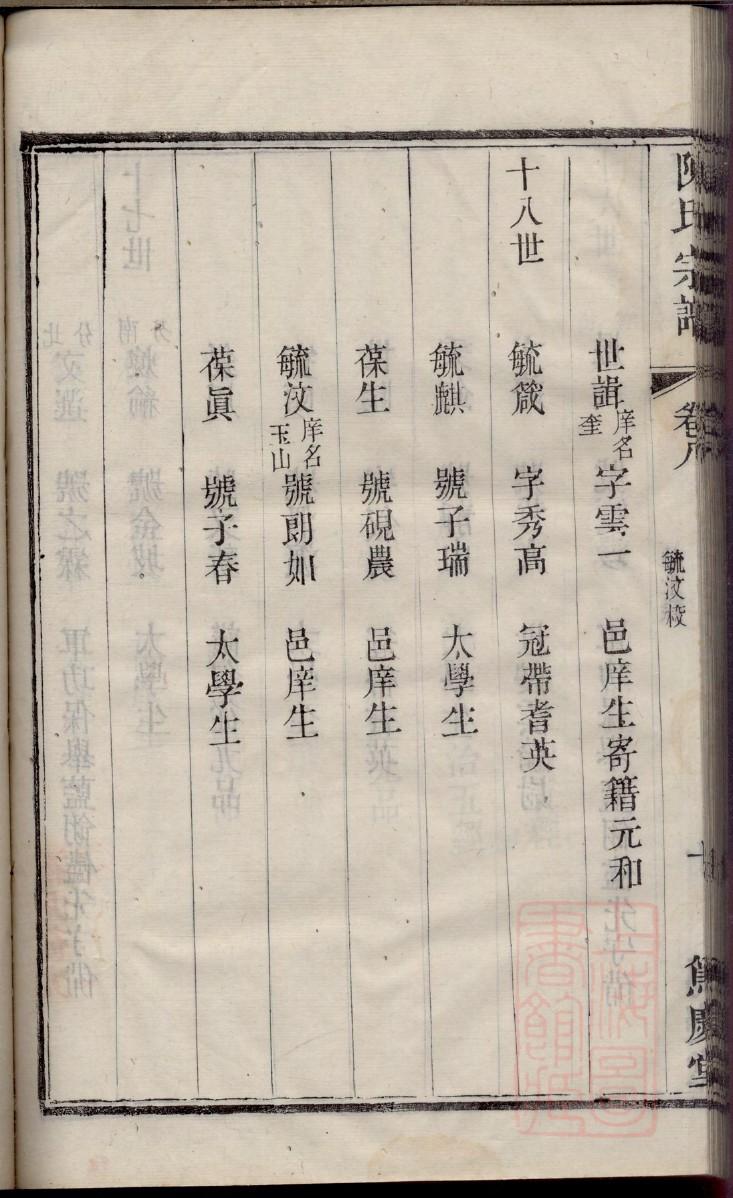 陳氏宗譜 卷
毓汶校
世諿庠名奎 字雲一 邑庠生寄籍元和
十八世 毓箴 字秀高 冠帶耆英
毓麒 號子瑞 太學生
葆生 號硯農 邑庠生
毓汶庠名玉山 號朗如 邑庠生
葆眞 號子春 太學生
慶堂